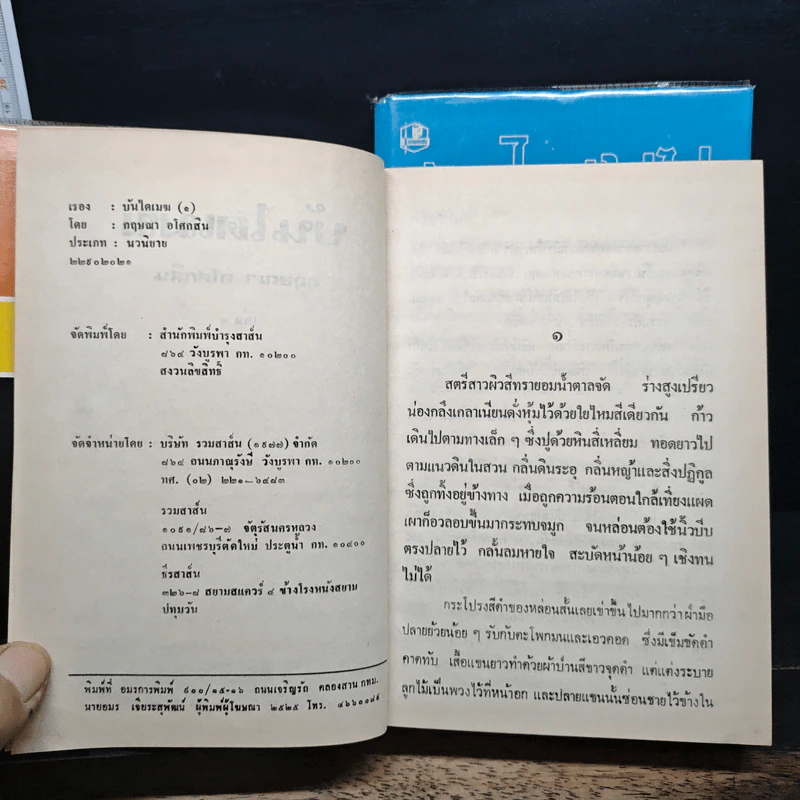 เรื่อง : บันไดเมฆ (๑)
โดย : กฤษณา อโศกสิน
ประเภท : นวนิยาย
๒๒๙๐๒๐๒๑
จัดพิมพ์โดย : สำนักพิมพ์บำรุงสาส์น
๘๖๔ วังบูรพา กท. ๑๐๒๐๐
สงวนลิขสิทธิ์
จัดจำหน่ายโดย : บริษัท รวมสาส์น (๑๙๗๗) จำกัด
๘๖๔ ถนนภาณุรังษี วังบูรพา กท. ๑๐๒๐๐
ทศ. (๐๒) ๒๒๑–๖๔๘๓
รวมสาส์น
๑๐๙๑/๘๖–๗ จัตุรัสนครหลวง
ถนนเพชรบุรีตัดใหม่ ประตูน้ำ กท. ๑๐๔๐๐
ธีรสาส์น
๓๒๖–๘ สยามสแควร์ ๔ ข้างโรงหนังสยาม
ปทุมวัน
พิมพ์ที่ อมรการพิมพ์ ๙๐๐/๑๕-๑๖ ถนนเจริญรัถ คลองสาน กทม.
นายอมร เจียระสุพัฒน์ ผู้พิมพ์ผู้โฆษณา ๒๕๒๕ โทร.
๑
สตรีสาวผิวสีทรายอมน้ำตาลจัด ร่างสูงเปรียว
น่องกลึงเกลาเนียนดั่งหุ้มไว้ด้วยใยไหมสีเดียวกัน ก้าว
เดินไปตามทางเล็ก ๆ ซึ่งปูด้วยหินสี่เหลี่ยม ทอดยาวไป
ตามแนวดินในสวน กลิ่นดินระอุ กลิ่นหญ้าและสิ่งปฏิกูล
ซึ่งถูกทิ้งอยู่ข้างทาง เมื่อถูกความร้อนตอนใกล้เที่ยงแผด
เผาก็อวลอบขึ้นมากระทบจมูก จนหล่อนต้องใช้นิ้วบีบ
ตรงปลายไว้ กลั้นลมหายใจ สะบัดหน้าน้อย ๆ เชิงทน
ไม่ได้
กระโปรงสีดำของหล่อนสั้นเลยเข่าขึ้นไปมากกว่าฝ่ามือ
ปลายย้วยน้อย ๆ รับกับตะโพกมนและเอวคอด ซึ่งมีเข็มขัดดำ
คาดทับ เสื้อแขนยาวทำด้วยผ้าป่านสีขาวจุดดำ แต่แต่งระบาย
ลูกไม้เป็นพวงไว้ที่หน้าอก และปลายแขนนั้นซ่อนชายไว้ข้างใน